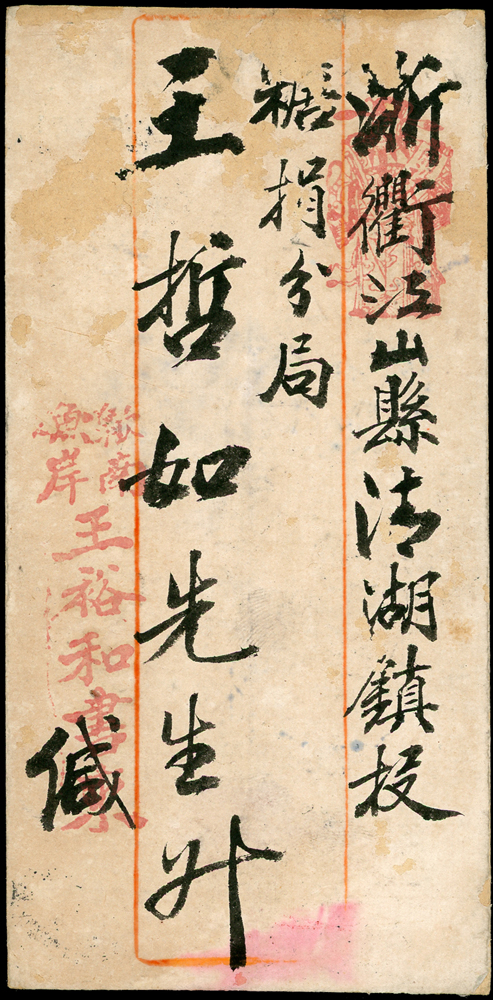 浙衢江山縣清湖鎮投
捐分局
王哲如先生升
歙南
源岸
王裕和書柬
緘